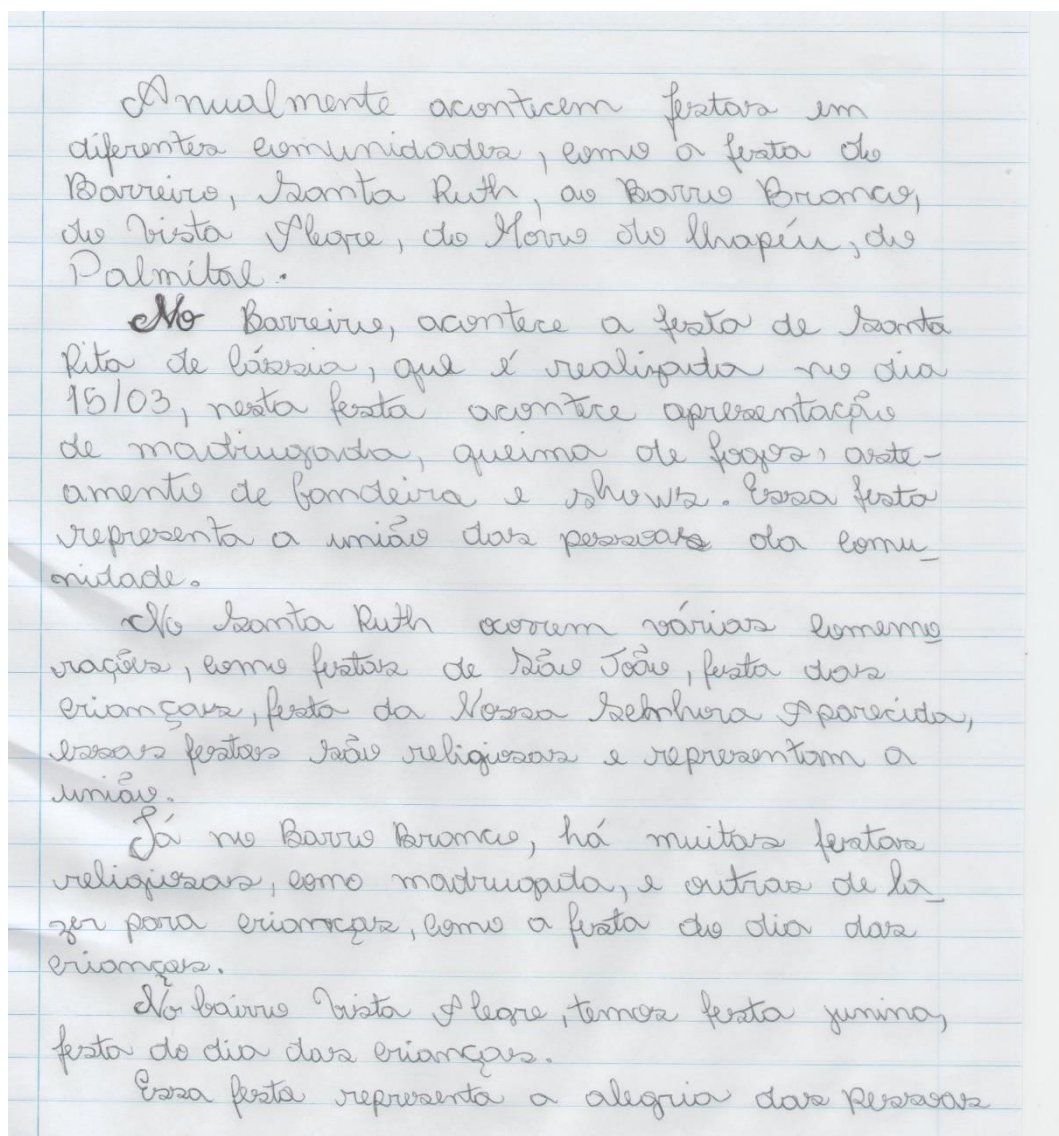 Anualmente acontecem festas em
diferentes comunidades, como a festa do
Barreiro, Santa Ruth, ao Barro Branco,
do Vista Alegre, do Morro do Chapéu, do
Palmital.
No Barreiro, acontece a festa de Santa
Rita de Cássia, que é realizada no dia
15/03, nesta festa acontece apresentação
de madrugada, queima de fogos, aste-
amento de bandeira e shows. Essa festa
representa a união das pessoas da comu_
nidade.
No Santa Ruth ocorrem várias comemo_
rações, como festas de São João, festa das
crianças, festa da Nossa Senhora Aparecida,
essas festas são religiosas e representam a
união.
Já no Barro Branco, há muitas festas
religiosas, como madrugada, e outras de la_
zer para crianças, como a festa do dia das
crianças.
No bairro Vista Alegre, temos festa junina,
festa do dia das crianças.
Essa festa representa a alegria das pessoas